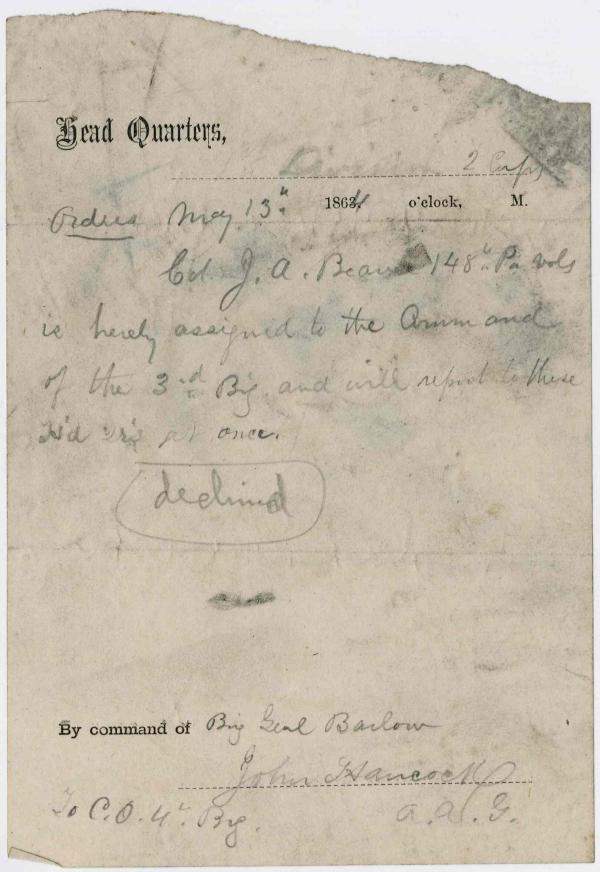 Head Quarters,
Division 2 Corps
Orders May 13" 1864, o'clock, M.
Col. J. A. Beaver 148" Pa vols
is hereby assigned to the Command
of the 3rd Brig. and will report to these
Hd Qrs at once.
declined
By command of Brig Genl Barlow
John Hancock
To C.O. 4" Brig. A.A.G.